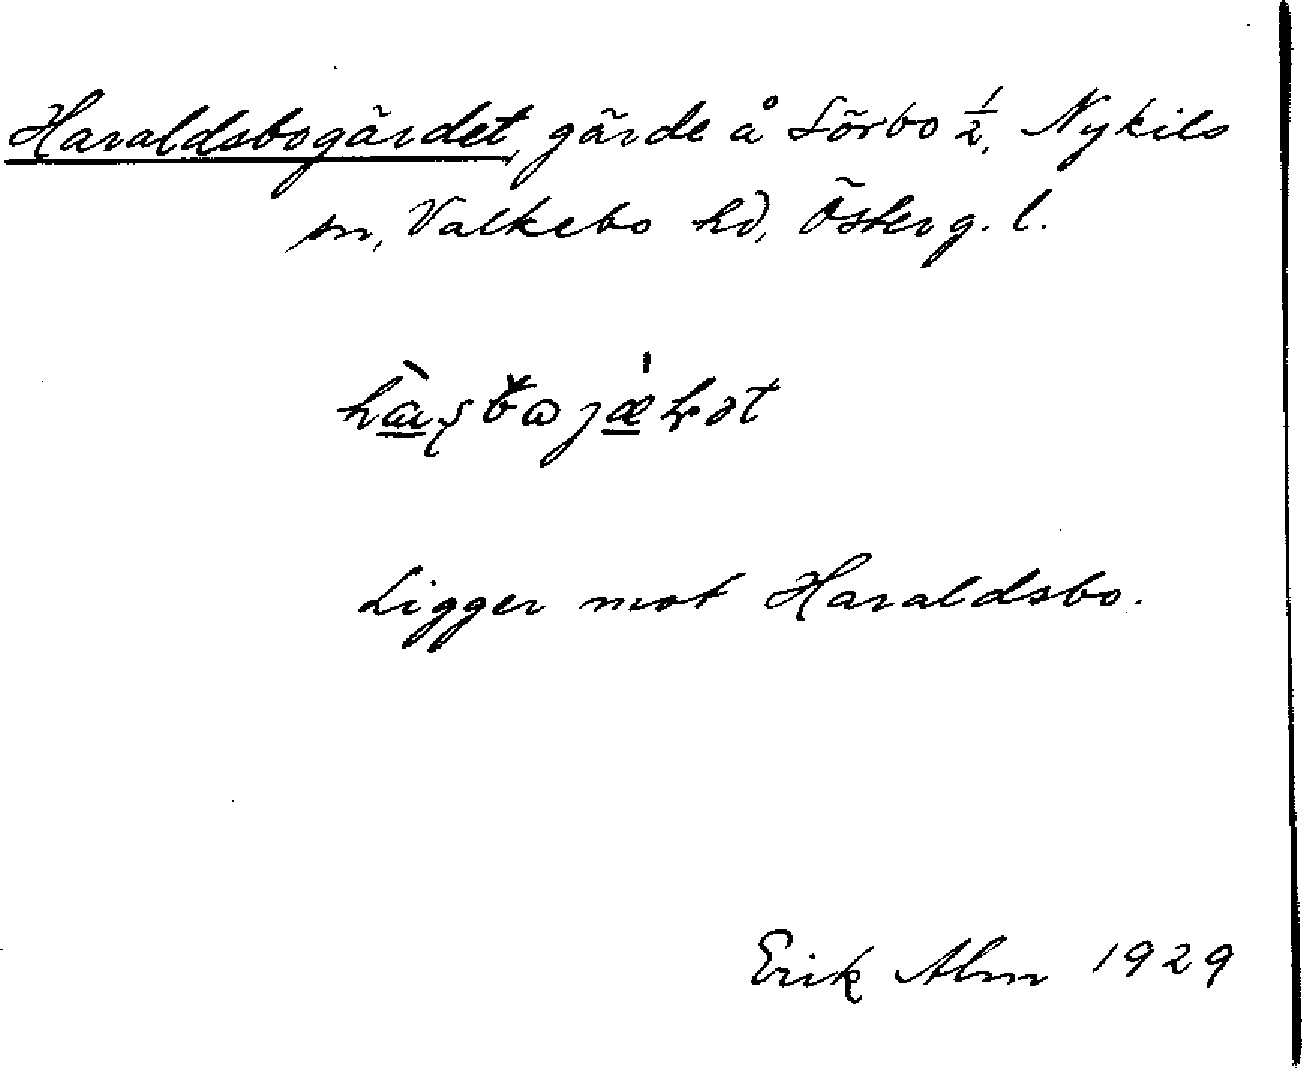 Haraldsbogärdet, gärde å Sörbo 1/2, Nykils
sn, Valkebo hd, Österg. l.
Ligger mot Haraldsbo.
Erik Alm 1929